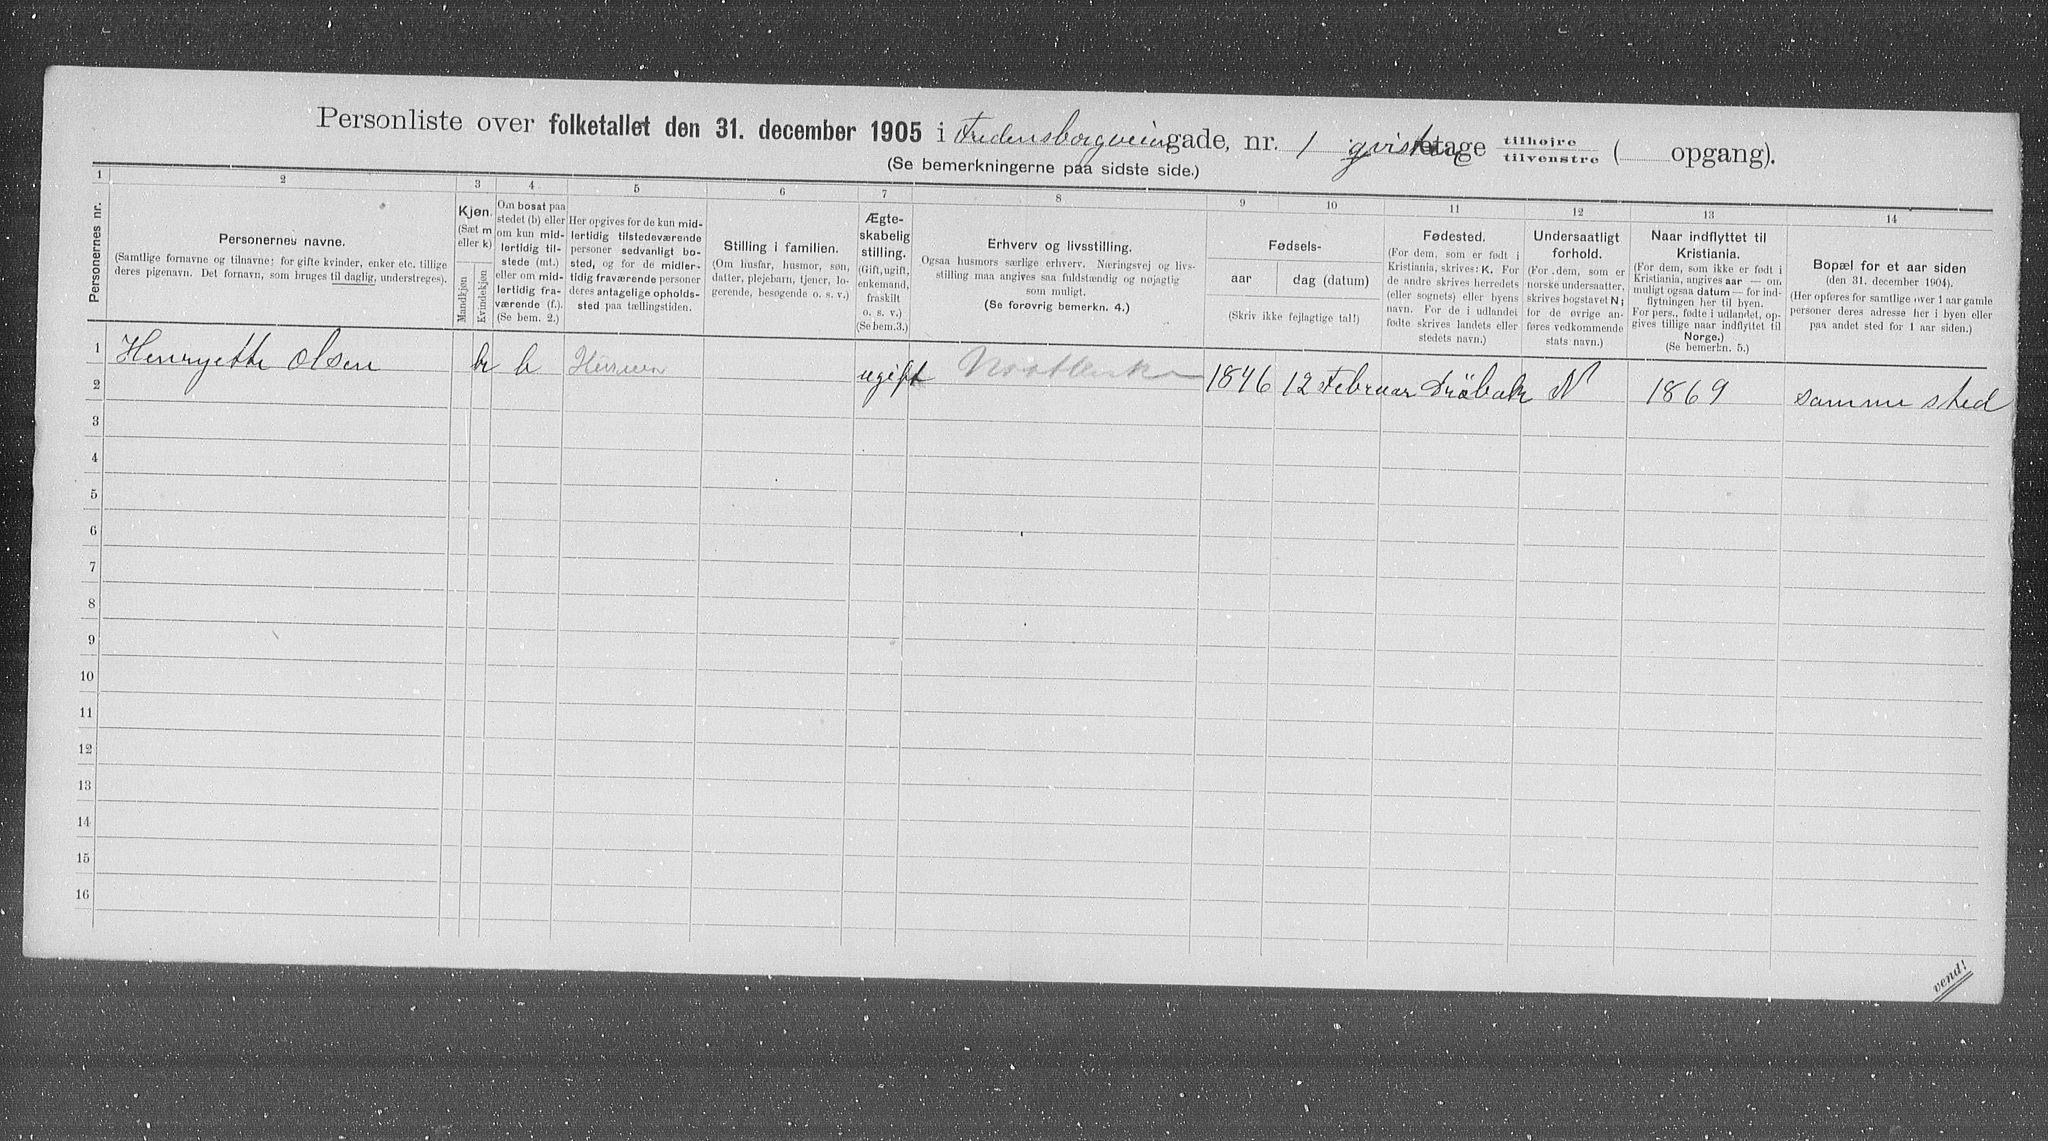 Personliste over folketallet den 31. december 1905 i Fredensborgveien gade, nr. 1 qvist etage tilhøjre tilvenstre ( opgang).
(Se bemerkningerne paa sidste side.)
1 2 3 4 5 6 7 8 9 10 11 12 13 14
Personernes nr.
Personernes navne.
(Samtlige fornavne og tilnavne; for gifte kvinder, enker etc. tillige
deres pigenavn. Det fornavn, som bruges til daglig, understreges).
Kjøn.
(Sæt m
eller k)
Mandkjøn
Kvindekjøn
Om bosat paa
stedet (b) eller
om kun mid-
lertidig til-
stede (mt.)
eller om mid-
lertidig fra-
værende (f.).
(Se bem. 2.)
Her opgives for de kun mid-
lertidig tilstedeværende
personer sedvanligt bo-
sted, og for de midler-
tidig fraværende personer
deres antagelige opholds-
sted paa tællingstiden.
Stilling i familien.
(Om husfar, husmor, søn,
datter, plejebarn, tjener, lo-
gerende, besøgende o. s. v.)
Ægte-
skabelig
stilling.
(Gift, ugift,
enkemand,
fraskilt
o. s. v.)
(Se bem. 3.)
Erhverv og livsstilling.
Ogsaa husmors særlige erhverv. Næringsvej og livs-
stilling maa angives saa fuldstændig og nøjagtig
som muligt.
(Se forøvrig bemerkn. 4.)
Fødsels-
aar
dag (datum)
(Skriv ikke fejlagtige tal!)
Fødested.
(For dem, som er født i
Kristiania, skrives: K. For
de andre skrives herredets
(eller sognets) eller byens
navn. For de i udlandet
fødte skrives landets eller
stedets navn.)
Undersaatligt
forhold.
(For dem, som er
norske undersaatter,
skrives bogstavet N;
for de øvrige an-
føres vedkommende
stats navn.)
Naar indflyttet til
Kristiania.
(For dem, som ikke er født i
Kristiania, angives aar — om
muligt ogsaa datum — for ind-
flytningen her til byen.
For pers., fødte i udlandet, op-
gives tillige naar indflyttet til
Norge.)
(Se bemerkn. 5.)
Bopæl for et aar siden
(den 31. december 1904).
(Her opføres for samtlige over 1 aar gamle
personer deres adresse her i byen eller
paa andet sted for 1 aar siden.)
1 Henryette Olsen k b ugift 1846 12 Februar Dröbak N 1869 samme sted
2
3
4
5
6
7
8
9
10
11
12
13
14
15
16
vend!